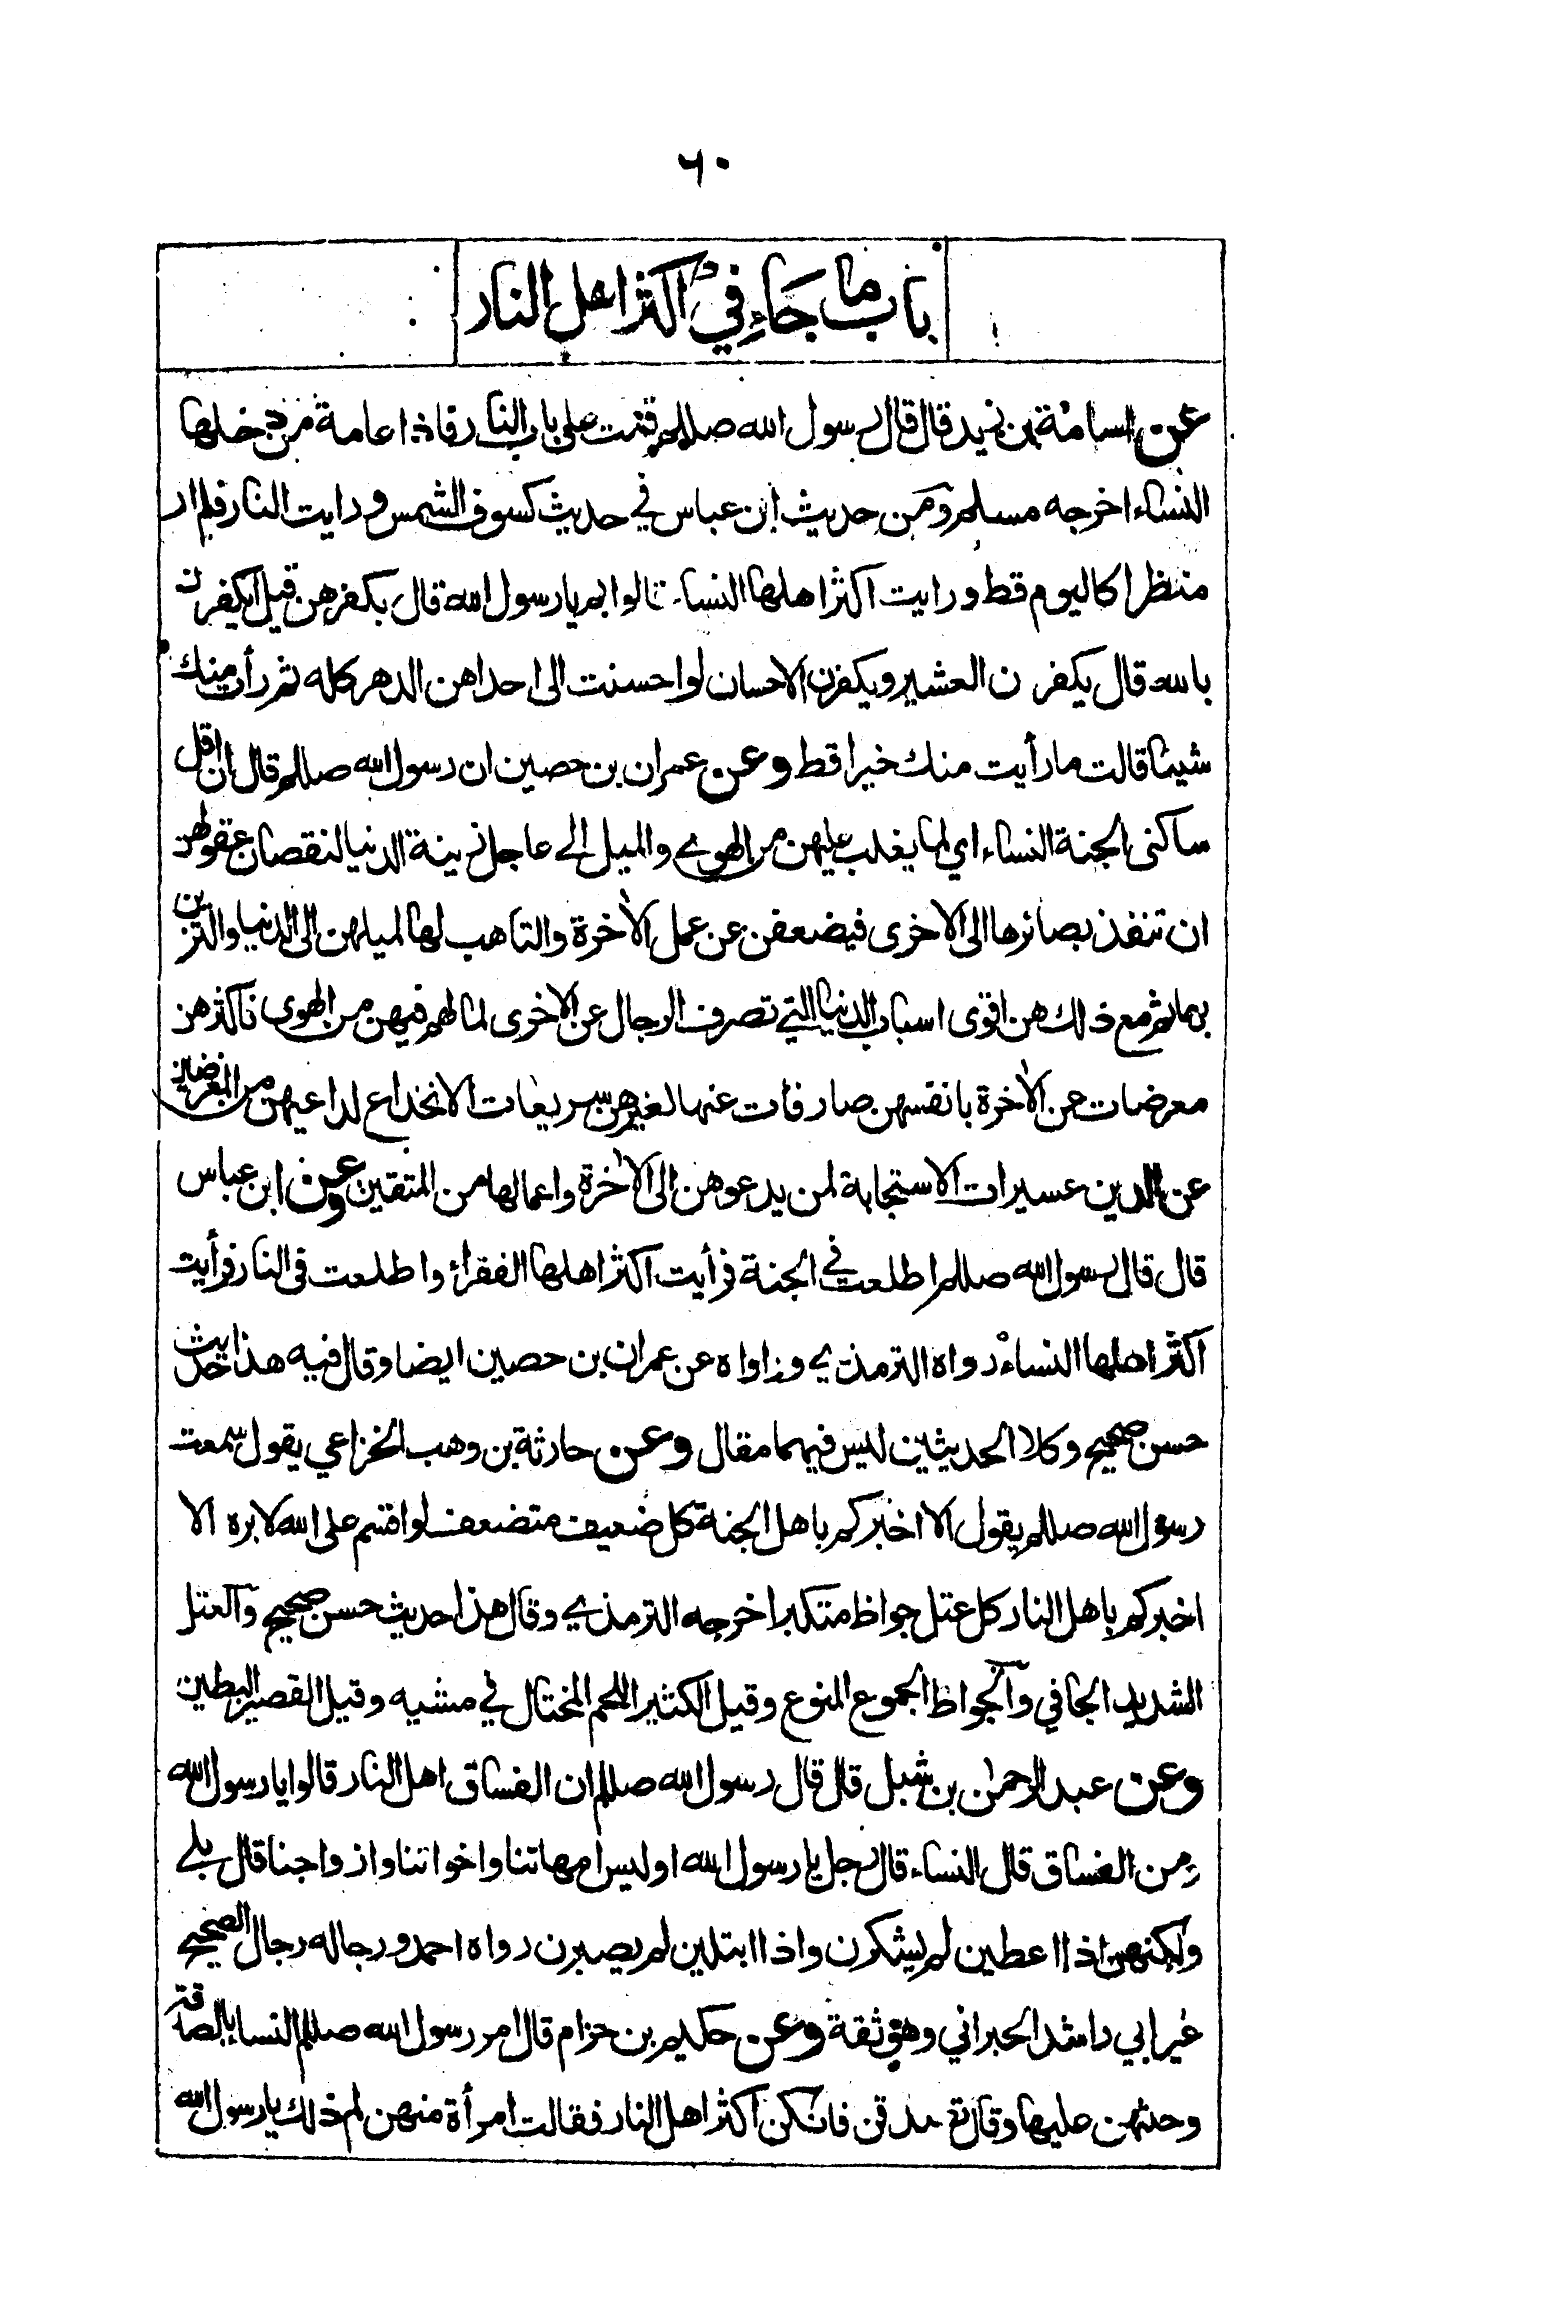 ٦٠
باب ما جاء في اكثر اهل النار
عن اسامة بن زيد قال قال رسول الله صللم قمت على باب النار فاذا عامة من دخلها
النساء اخرجه مسلم ومن حديث ابن عباس في حديث كسوف الشمس ورايت النار فلم ار
منظرا كاليوم قط ورايت اكثر اهلها النساء قالوا بم يا رسول الله قال بكفرهن قيل ايكفرن
بالله قال يكفرن العشير ويكفرن الاحسان لو احسنت الى احداهن الدهر كله ثم رأت منك
شيئا قالت ما رأيت منك خيرا قط وعن عمران بن حصين ان رسول الله صللم قال ان اقل
ساكنى الجنة النساء اي لما يغلب عليهن من الهوى والميل الى عاجل زينة الدنيا لنقصان عقولهن
ان تنفذ بصائرها الى الاخرى فيضعفن عن عمل الآخرة والتاهب لها لميلهن الى الدنيا والتزين
بها ثم مع ذلك هن اقوى اسباب الدنيا التي تصرف الرجال عن الاخرى لما لهم فيهن من الهوى فاكثرهن
معرضات عن الآخرة بانفسهن صارفات عنها لغيرهن سريعات الانخداع لداعيهن من المعرضين
عن الدين عسيرات الاستجابة لمن يدعوهن الى الآخرة واعمالها من المتقين وعن ابن عباس
قال قال رسول الله صللم اطلعت في الجنة فرأيت اكثر اهلها الفقراء واطلعت في النار فرأيت
اكثر اهلها النساء رواه الترمذي ورواه عن عمران بن حصين ايضا وقال فيه هذا حديث
حسن صحيح وكلا الحديثين ليس فيهما مقال وعن حارثة بن وهب الخزاعي يقول سمعت
رسول الله صللم يقول الا اخبركم باهل الجنة كل ضعيف متضعف لو اقسم على الله لابره الا
اخبركم باهل النار كل عتل جواظ متكبر اخرجه الترمذي وقال هذا حديث حسن صحيح والعتل
الشديد الجافي والجواظ الجموع المنوع وقيل الكثير اللحم المختال في مشيه وقيل القصير البطين
وعن عبد الرحمن بن شبل قال قال رسول الله صللم ان الفساق اهل النار قالوا يا رسول الله
من الفساق قال النساء قال رجل يا رسول الله اوليس امهاتنا واخواتنا وازواجنا قال بلى
ولكنهن اذا اعطين لم يشكرن واذا ابتلين لم يصبرن رواه احمد ورجاله رجال الصحيح
غير ابي راشد الحبراني وهو ثقة وعن حكيم بن حزام قال امر رسول الله صللم النسا بالصدقة
وحثهن عليها وقال تصدقن فانكن اكثر اهل النار فقالت امرأة منهن لم ذلك يا رسول الله